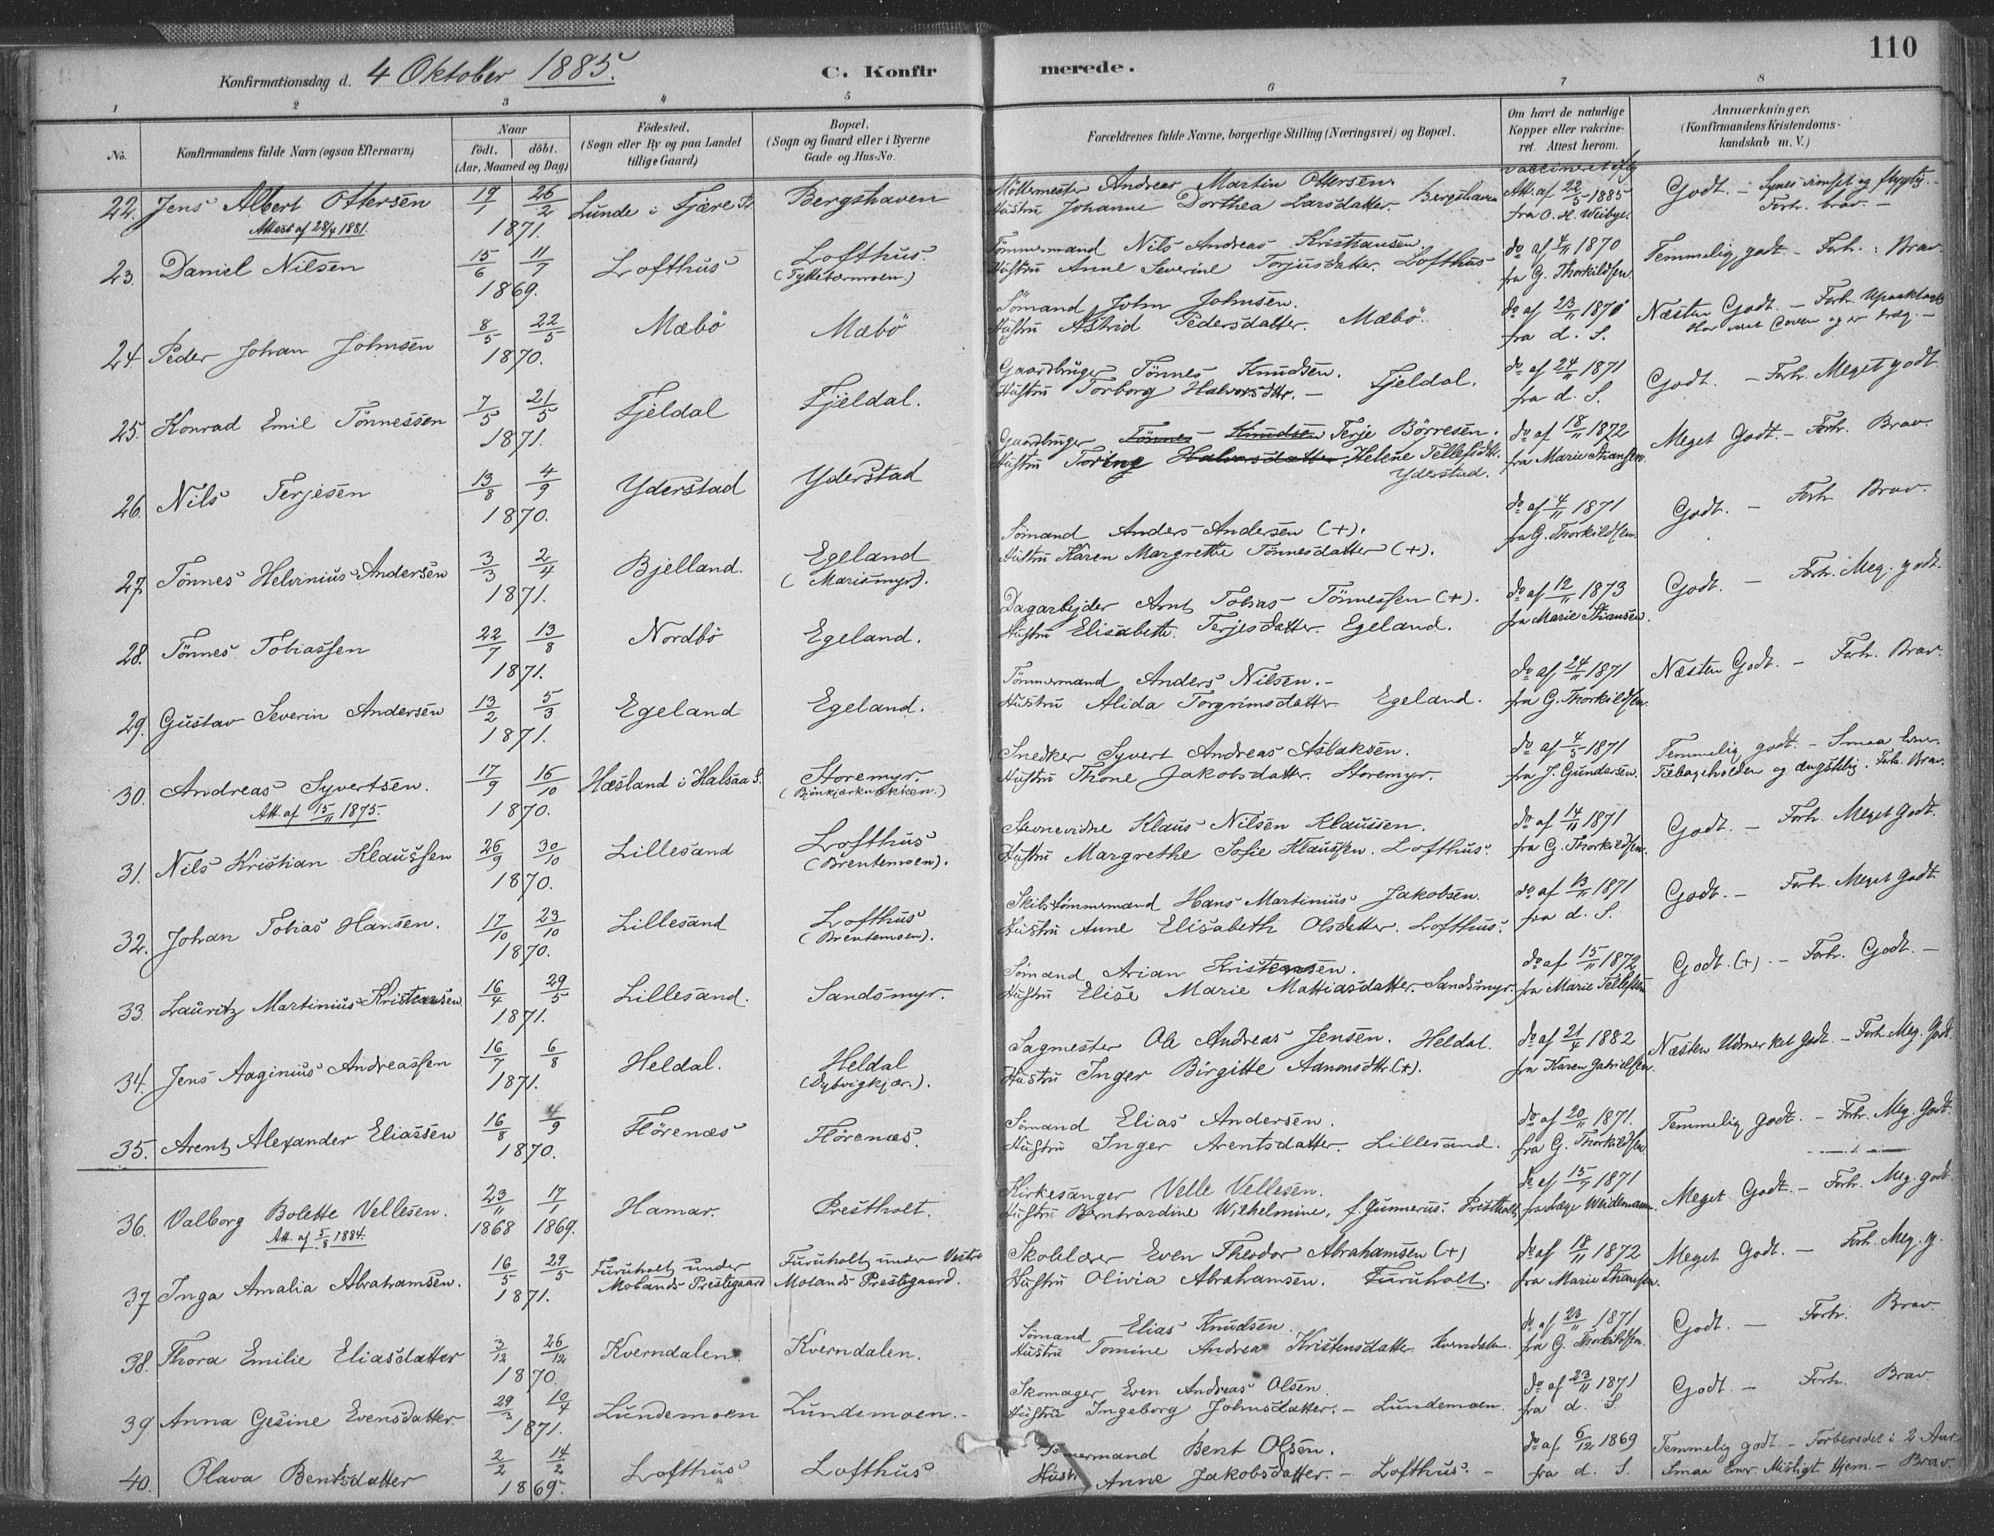 110
Konfirmationsdag d. 4 Oktober 1885. C. Konfirmerede.
1 2 3 4 5 6 7 8
No. Konfirmandens fulde Navn (ogsaa Efternavn) Naar födt. döbt. (Aar, Maaned og Dag) Födested. (Sogn eller By og paa Landet tillige Gaard) Bopæl. (Sogn og Gaard eller i Byerne Gade og Hus-No. Forældrenes fulde Navne, borgerlige Stilling (Næringsvei) og Bopæl. Om havt de naturlige Kopper eller vakcineret. Attest herom. Anmærkninger. (Konfirmandens Kristendomskundskab m. V.)
22. Jens Albert Ottersen 19/1 26/2 Lunde i Fjære Bergshaven Andreas Martin Ottersen. Att. af 22/5 1885 Godt. –
Attest af 28/4 1881. 1871. Hustru Johanne Dorthea Larsdatter. Bergshaven Forh. brav. –
23. Daniel Nilsen 15/6 11/7 Lofthus Lofthus. Tømmermand Nils Andreas Kristiansen. do af 4/11 1870 Temmelig godt. – Forh. : Brav.
1869. Hustru Anne Severine Torjusdatter. Lofthus fra G. Thorkildsen
24. Peder Johan Johnsen 8/5 22/5 Mæbö Mæbö Sømand John Johnsen. do af 23/11 1870 Næsten Godt. – Forh.
1870. Hustru Astrid Pedersdatter. Mæbö. fra d. S.
25. Konrad Emil Tönnessen 7/5 21/5 Fjeldal Fjeldal. Gaardbruger Tönnes Knudsen. do af 24/11 1871 Godt. – Forh. Meget godt
1871. Hustru Torborg Halvorsdtr. – Fjeldal. fra d. S.
26. Nils Terjesen 13/8 4/9 Yderstad Yderstad Gaardbruger Tönnes Knudsen Terje Börresen. do af 18/11 1872 Meget Godt. – Forh. Brav.
1870. Hustru Toring Halvorsdatter Helene Tellefsdtr. Yderstad. fra Marie Thansen.
27. Tönnes Helvinius Andersen 3/3 2/4 Bjelland. Egeland Sømand Anders Andersen (+). do af 4/11 1871 Godt. – Forh. Brav.
1871. (Marismyr). Hustru Karen Margrethe Tönnesdatter (+). fra G. Thorkildsen.
28. Tönnes Tobiassen 22/7 13/8 Nordbö Egeland. Dagarbejder Arnt Tobias Tönnessen (+). do af 12/11 1873 Godt. – Forh. Meg. godt.
1871. Hustru Elisabeth Terjesdatter. Egeland. fra Marie Thansen.
29. Gustav Severin Andersen 13/2 5/3 Egeland Egeland. Tömmermand Anders Nilsen. – do af 24/11 1871 Næsten Godt. – Forh. Brav.
1871. Hustru Alida Torgrimsdatter Egeland. fra G. Thorkildsen.
30. Andreas Syvertsen. 17/9 16/10 Hæsland i Halsaa S. Storemyr. Snedker Syvert Andreas Aslaksen. do af 4/5 1871 Temmelig godt. – Smaa Evner.
Att. af 15/11 1875. 1870. Hustru Thone Jakobsdatter. Storemyr. fra J. Gundersen. Tilbageholden og ængstelig. Forh. Brav.
31. Nils Kristian Klaussen 26/9 30/10 Lillesand Lofthus Klaus Nilsen Klaussen. do af 14/11 1871 Godt. – Forh. Meget Godt.
1870. (Brentemoen). Hustru Margrethe Sofie Klaussen. Lofthus. fra G. Thorkildsen.
32. Johan Tobias Hansen. 17/10 23/10 Lillesand Lofthus Skibstömmermand Hans Martinius Jakobsen. do af 13/11 1871 Godt. – Forh. Meget Godt
1870. (Brentemoen). Hustru Anne Elisabeth Olsdatter. Lofthus. fra d. S.
33. Lauritz Martinius Kristensen 16/4 29/5 Lillesand. Sandsmyr. Sømand Arian Kristensen. do af 15/11 1872 Godt. (+). – Forh. Godt. –
1871. Hustru Elise Marie Mattiasdatter. Sandsmyr. fra Marie Tellefsen
34. Jens Aaginius Andreassen 16/7 6/8 Heldal. Heldal Sagmester Ole Andreas Jensen. Heldal. do af 21/4 1882 Næsten Udmerket Godt. – Forh. Meg. Godt.
1871. (Dybvigkjær). Hustru Inger Birgitte Aanonsdtr. (+). fra Karen Gabrielsen.
35. Arent Alexander Eliassen 16/8 4/9 Hörenæs Hörenæs. Sømand Elias Andersen. do af 20/11 1871. Temmelig godt. – Forh. Meg. Godt.
1870. Hustru Inger Arentsdatter. Lillesand. fra G. Thorkildsen
36. Valborg Bolette Vellesen. 23/11 17/1 Hamar. Prestholt. Kirkesanger Velle Vellesen. do af 15/9 1871 Meget Godt. – Forh. Meg. godt
Att. af 5/8 1884. 1868 1869. Hustru Berntvardine Wilhelmine, f. Gunnerus. Prestholt, fra Læge Weidemann.
37 Inga Amalia Abrahamsen. 16/5 29/5 Furuholt under Furuholt under Vestre Skolelær Even Theodor Abrahamsen (+) do af 18/11 1872 Meget Godt. – Forh. Meg. g.
1871. Molands Prestegaard Molands Prestegaard. Hustru Olivia Abrahamsen. Furuholt. fra Marie Thansen.
38. Thora Emilie Eliasdatter 3/12 26/12 Kverndalen. Kverndalen. Sømand Elias Knudsen. do af 23/11 1871 Godt. – Forh. Brav.
1870. Hustru Tomine Andrea Kristensdatter Kverndalen fra G. Thorkildsen.
39. Anna Gesine Evensdatter 29/3 10/4 Lundemoen Lundemoen. – Skomager Even Andreas Olsen. do af 23/11 1871 Godt. – Forh. Brav.
1871. Hustru Ingeborg Johnsdatter. – Lundemoen. fra d. S
40. Olava Bentsdatter 2/2 14/2 Lofthus Lofthus Tömmermand Bent Olsen. do af 6/12 1869 Temmelig godt. – Forberedet i 2 Aar.
1869. Hustru Anne Jakobsdatter. – Lofthus. – fra d. S. Smaa Evner. Misligt Hjem. – Brav.